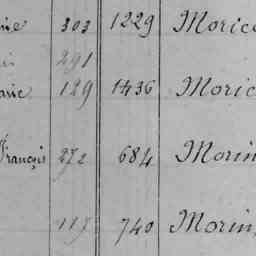 303 1229 Morice
291
129 1436 Morice
François 272 684 Morin
117 740 Morin